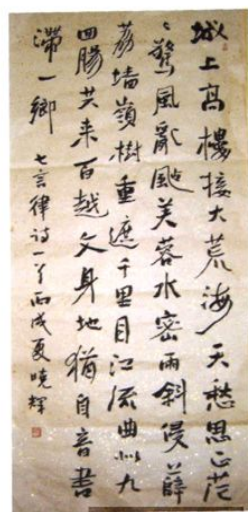 城上高樓接大荒海天愁思正茫
〻驚風亂颭芙蓉水密雨斜侵薜
荔墙嶺樹重遮千里目江流曲似九
回腸共来百越文身地猶自音書
滯一鄉 七言律诗一首丙戌夏曉輝